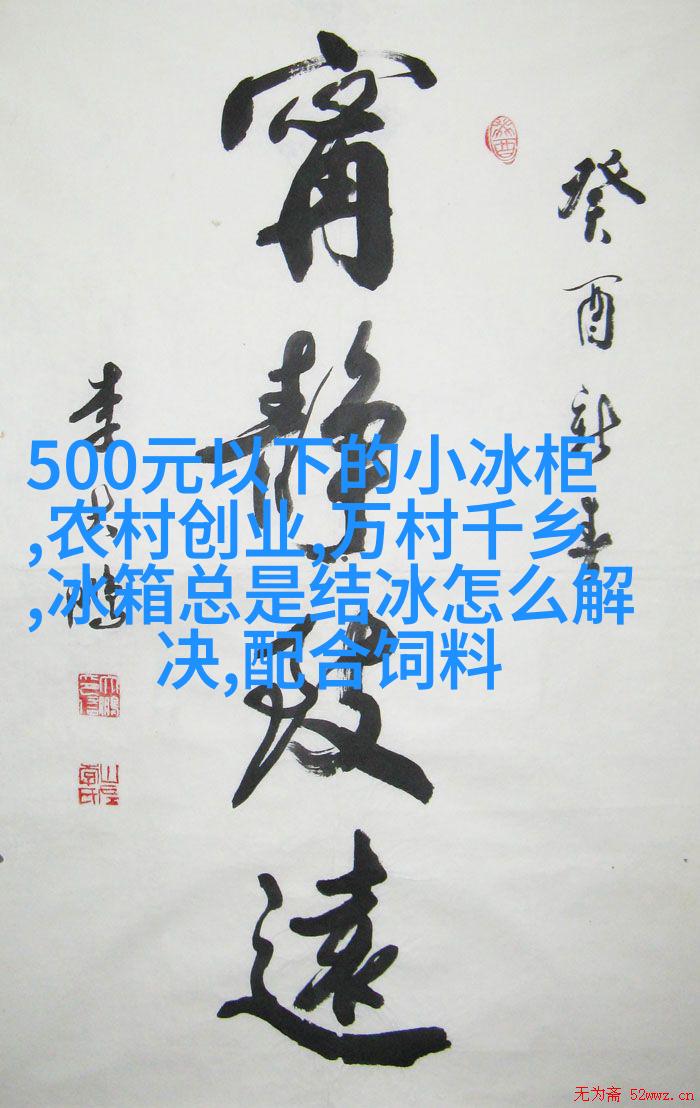 癸酉新春
甯靜致遠
李
500元以下的小冰柜
,农村创业,万村千乡
,冰箱总是结冰怎么解
决,配合饲料
无为斋 52wwz.cn